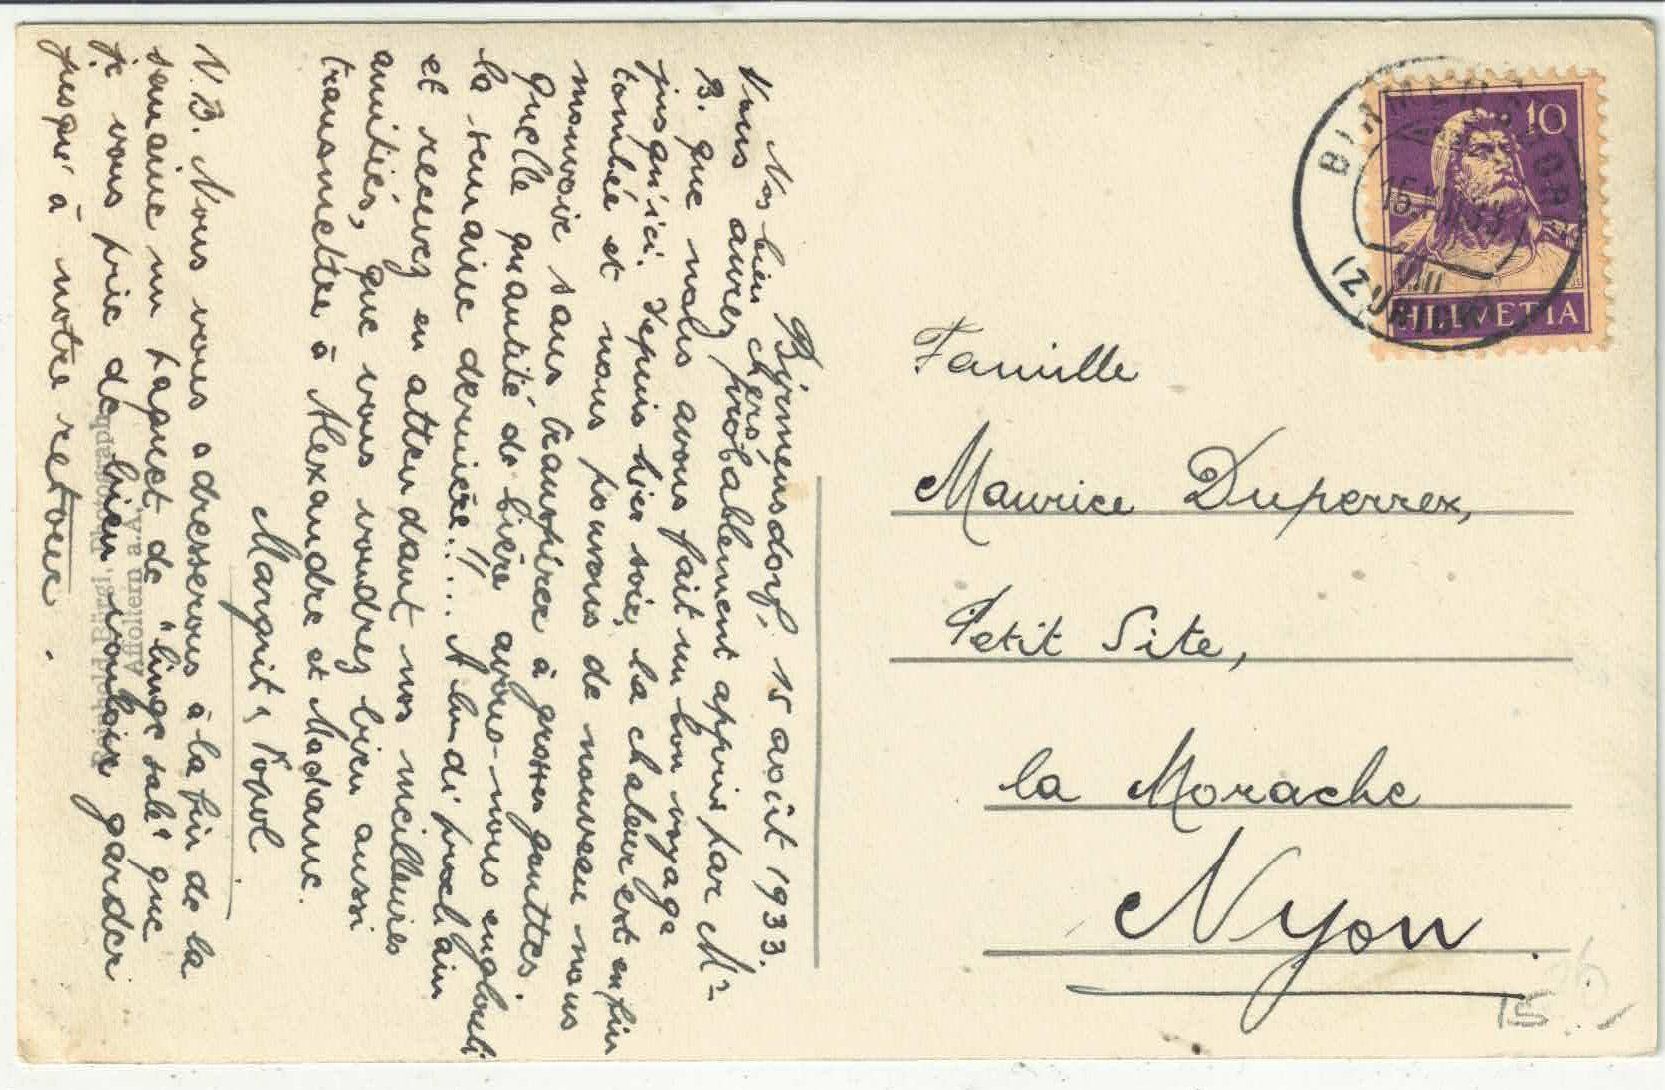 Birmensdorf, 15 août 1933.
Nos bien chers,
Vous aurez probablement appris par Mr
B. que nous avons fait un bon voyage
jusqu'ici. Depuis hier soir, la chaleur est enfin
tombée et nous pouvons de nouveau nous
mouvoir sans transpirer à grosses gouttes.
Quelle quantité de bière avons-nous englouti
la semaine dernière!!... A lundi prochain
et recevez en attendant nos meilleures
amitiés, que vous voudrez bien aussi
transmettre à Alexandre et Madame.
Margrit &
N.B. Nous vous adresserons à la fin de la
semaine un paquet de "linge sale" que
je vous prie de bien vouloir garder
jusqu'à notre retour.
Photograph
Affoltern a.A.
Famille
Maurice Duperrex,
Petit Site,
la Morache
Nyon
15.
10
HELVETIA
BIRMENSDORF
15.VIII.33
(ZÜRICH)